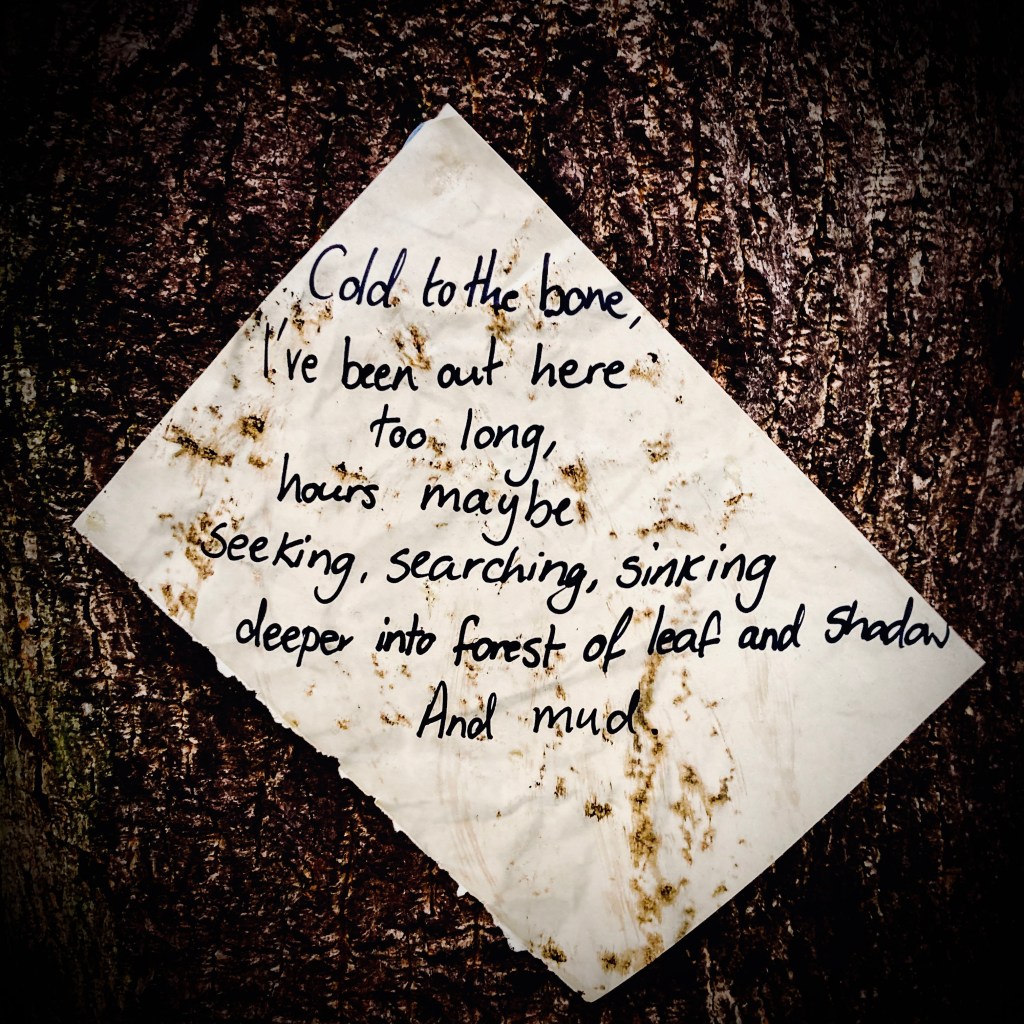 Cold to the bone,
I've been out here
too long,
hours maybe
seeking, searching, sinking
deeper into forest of leaf and shadow
And mud.